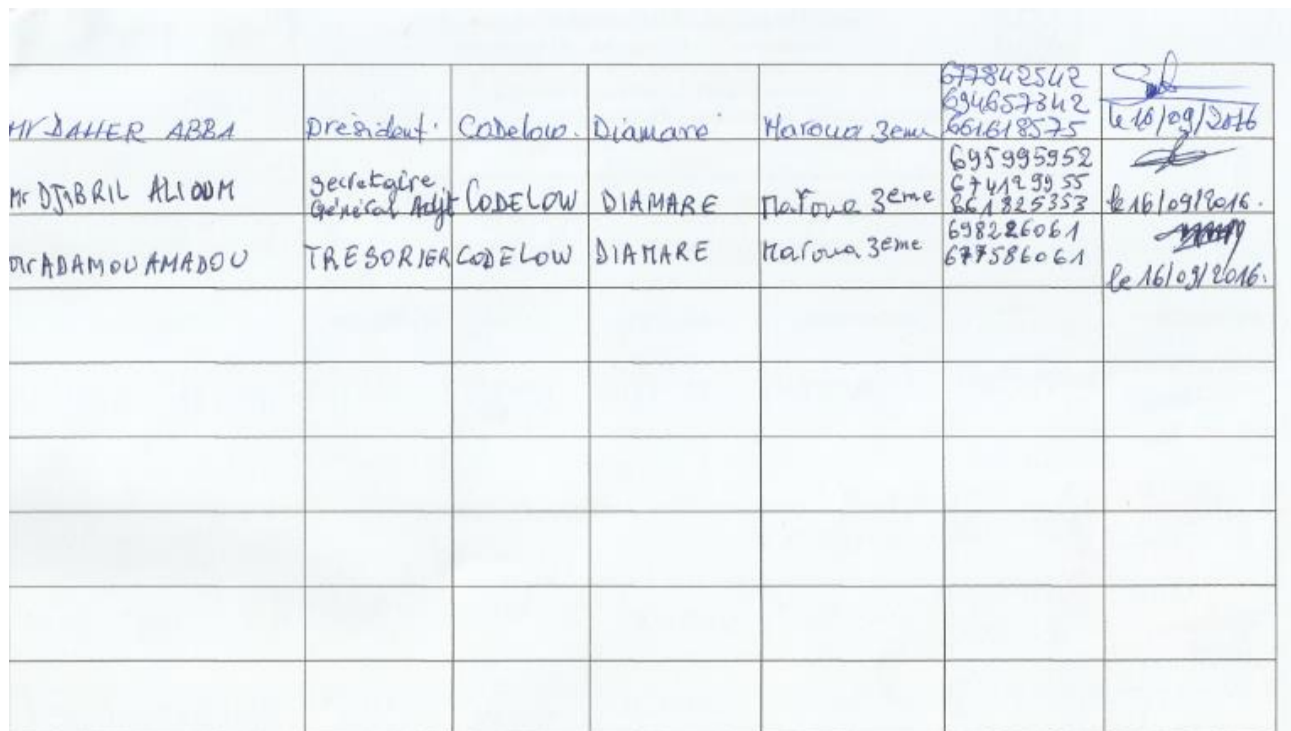 Mr DAHER ABBA Président. CoDelow. Diamaré Maroua 3eme 677842542 694657342 661618575 le 16/09/2016
Mr DJIBRIL ALIOUM Secretaire Général Adjt CODELOW DIAMARE Maroua 3eme 695995952 674129955 661825353 le 16/09/2016.
Mr ADAMOU AMADOU TRESORIER CODELOW DIAMARE Maroua 3eme 698226061 677586061 le 16/09/2016.